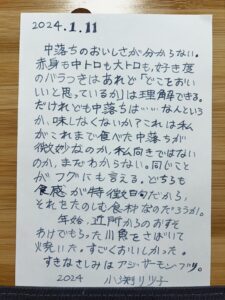 2024.1.11
中落ちのおいしさが分からない。
赤身も中トロも大トロも、好き度
のバラつきはあれど「どこをおい
しいと思っているか」は理解できる。
だけれども中落ちは……なんという
か、味しなくないか？これは私
がこれまで食べた中落ちが
微妙なのか、私向きではない
のか、まだわからない。同じこと
が フグにも言える。どちらも
食感が特徴的だから、
それをたのしむ食材なのだろうか。
年始、近所からのおすそ
わけでもらった川魚をさばいて
焼いた。すごくおいしかった。
すきなさしみはアジ、サーモン、ブリ。
2024 小渕リツ子